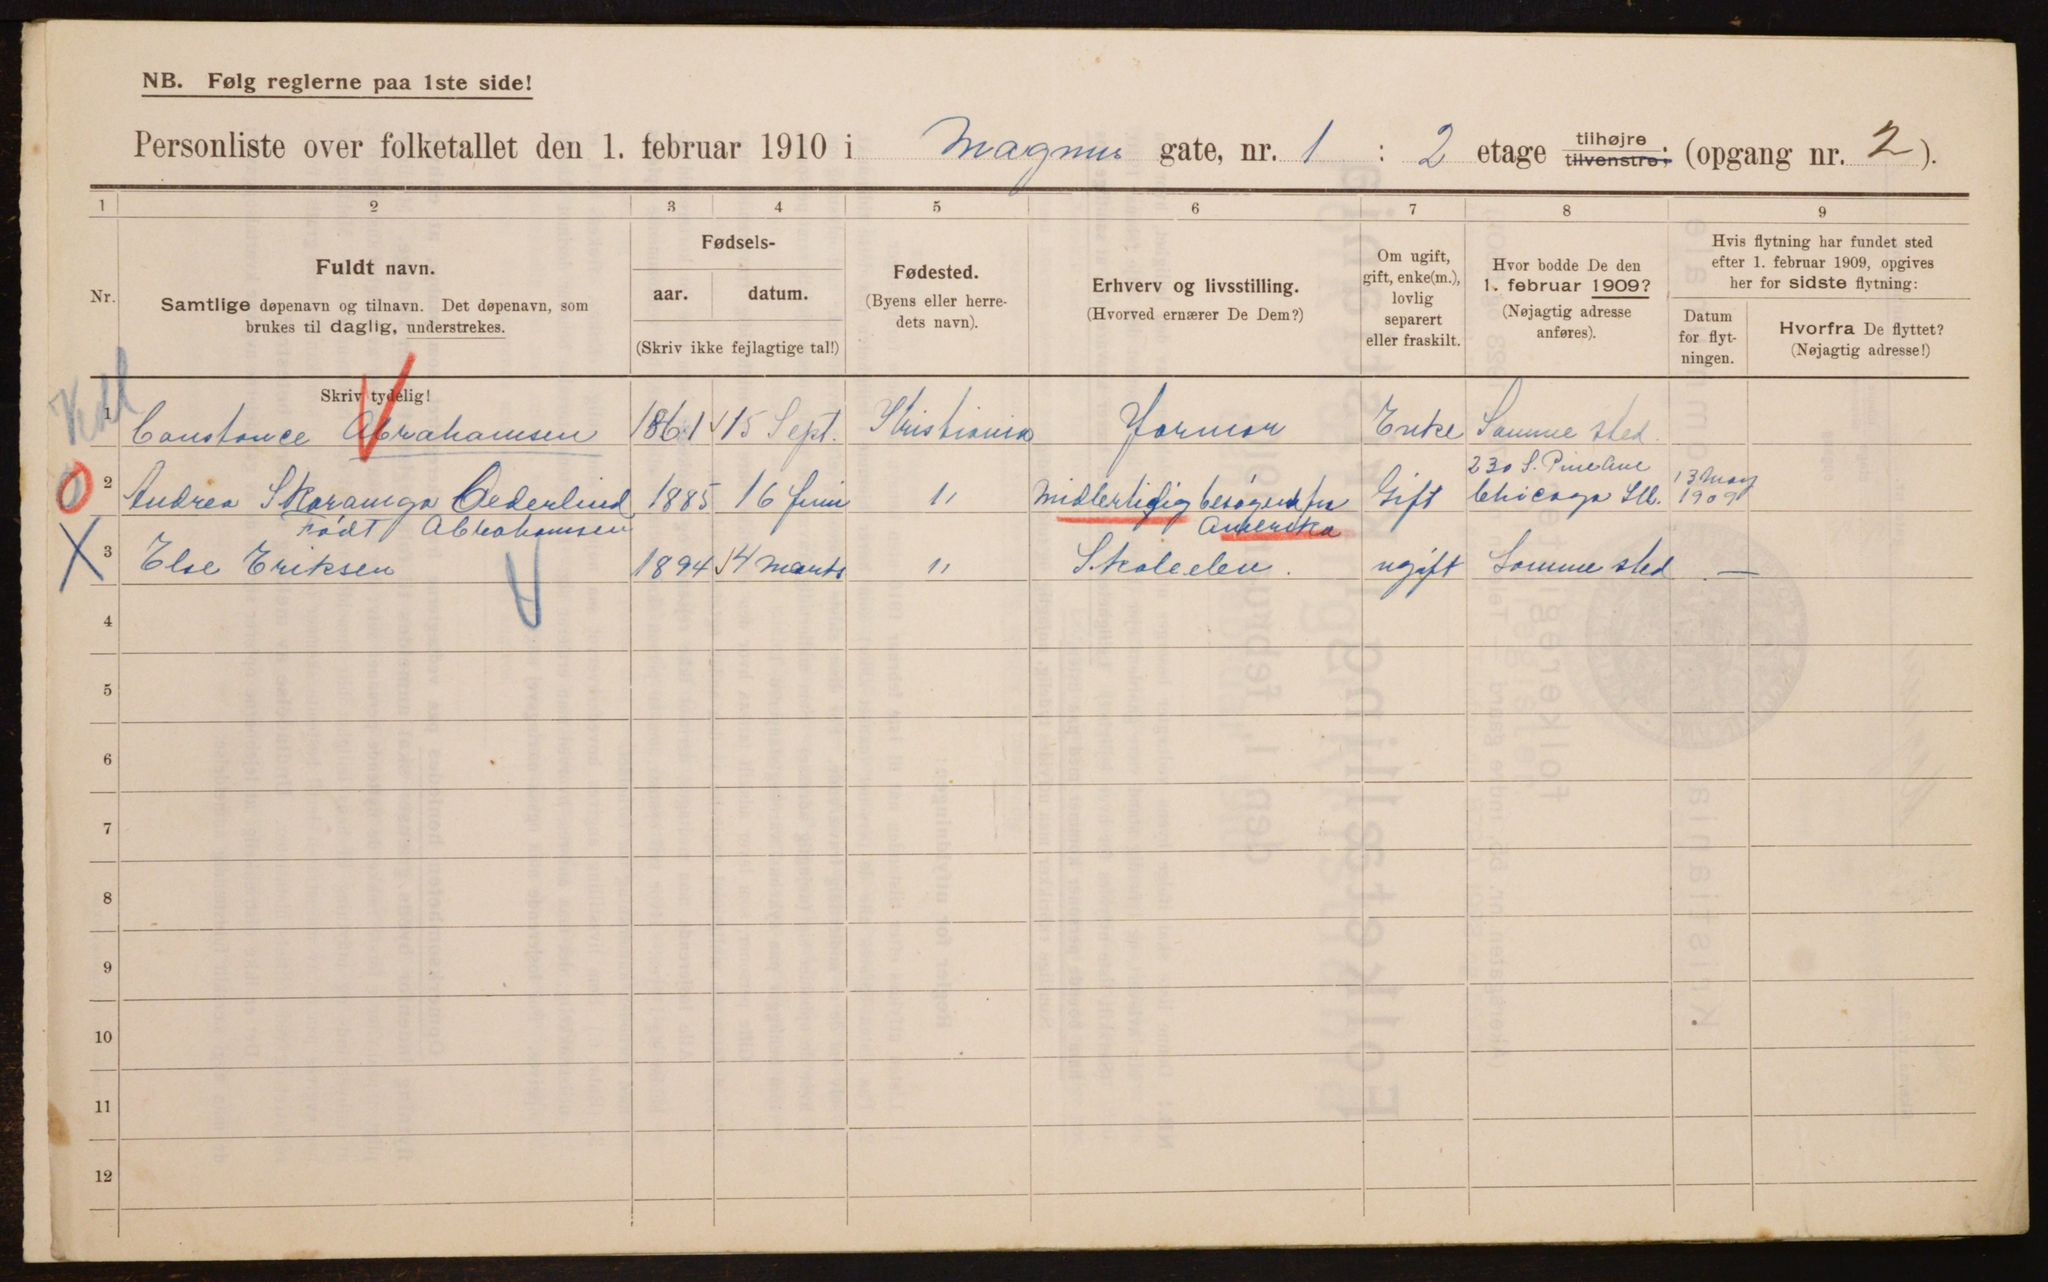 NB. Følg reglerne paa 1ste side!
Personliste over folketallet den 1. februar 1910 i Magnus gate, nr. 1 : 2 etage tilhøjre: tilvenstre; (opgang nr. 2).
1 2 3 4 5 6 7 8 9
Nr.
Fuldt navn.
Samtlige døpenavn og tilnavn. Det døpenavn, som
brukes til daglig, understrekes.
Fødsels-
aar. datum.
(Skriv ikke fejlagtige tal!)
Fødested.
(Byens eller herre-
dets navn).
Erhverv og livsstilling.
(Hvorved ernærer De Dem?)
Om ugift,
gift, enke(m.),
lovlig
separert
eller fraskilt.
Hvor bodde De den
1. februar 1909?
(Nøjagtig adresse
anføres).
Hvis flytning har fundet sted
efter 1. februar 1909, opgives
her for sidste flytning:
Datum
for flyt-
ningen.
Hvorfra De flyttet?
(Nøjagtig adresse!)
Skriv tydelig!
1 Constance Abrahamsen 1861 15 Sept. Kristiania Jormor Enke Samme sted.
230 S. Pine Ave
2 Andrea Skaramga Cederlind 1885 16 Juni " Midlertidig besøgend fra Gift Chicago Ill. 13 May 1909
Født Abrahamsen Amerika
3 Else Eriksen 1894 14 Marts " Skoleelev. ugift Samme sted —
4
5
6
7
8
9
10
11
12